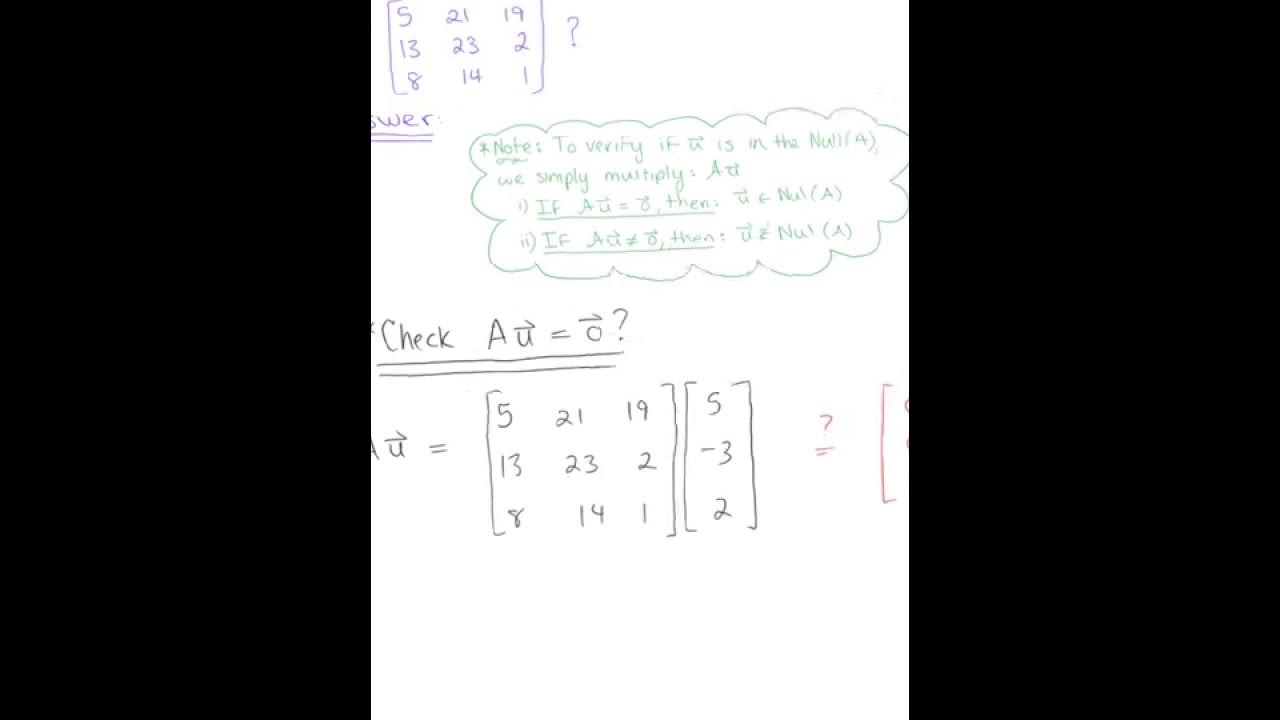 5 21 19
13 23 2 ?
8 14 1
swer:
*Note: To verify if u⃗ is in the Null(A),
we simply multiply: Au⃗
i) If Au⃗ = 0⃗, then: u⃗ ∈ Nul(A)
ii) If Au⃗ ≠ 0⃗, then: u⃗ ∉ Nul(A)
*Check Au⃗ = 0⃗?
Au⃗ = [5 21 19] [5] ?
[13 23 2] [-3] =
[8 14 1] [2]